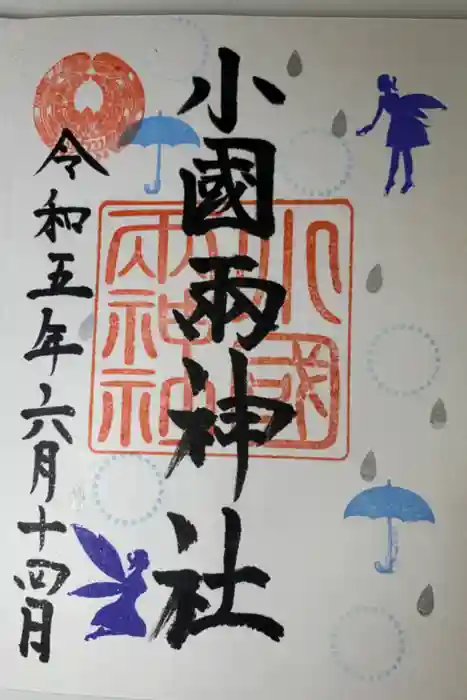 小國兩神社
令和五年六月十四日
小國
兩神社